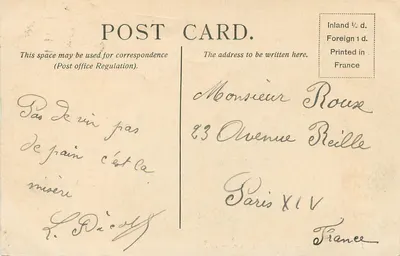 POST CARD.
This space may be used for correspondence
(Post office Regulation).
The address to be written here.
Inland ½ d.
Foreign 1 d.
Printed in
France
Pas de vin pas
de pain c'est la
misère
L.
Monsieur Roux
23 Avenue Reille
Paris XIV
France